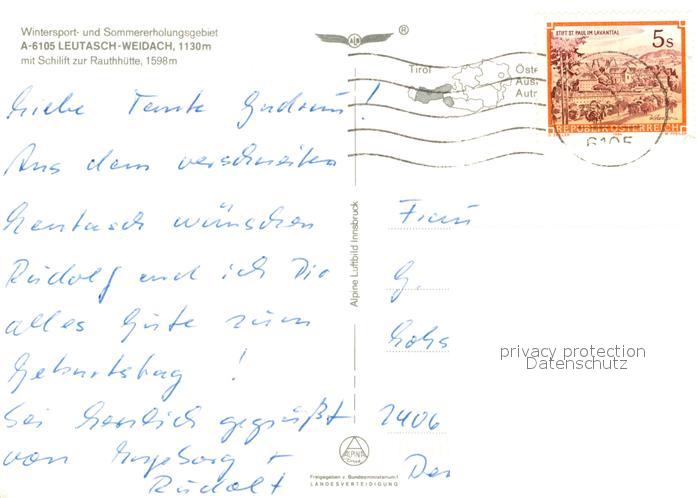 Wintersport- und Sommererholungsgebiet
A-6105 LEUTASCH-WEIDACH, 1130m
mit Schilift zur Rauthhütte, 1598m
ALPINE
®
Tirol
Öste
Aus
Autr
STIFT ST. PAUL IM LAVANTTAL
5s
REPUBLIK ÖSTERREICH
6105
Liebe Tante Gudrun!
Aus dem verschneiten
Leutasch wünschen
Rudolf und ich Dir
alles Gute zum
Geburtstag!
Sei herzlich gegrüßt
von Ingeborg +
Rudolf
Alpine Luftbild Innsbruck
Frau
G.
privacy protection
Datenschutz
2406
ALPINE
Freigegeben v. Bundesministerium f.
LANDESVERTEIDIGUNG